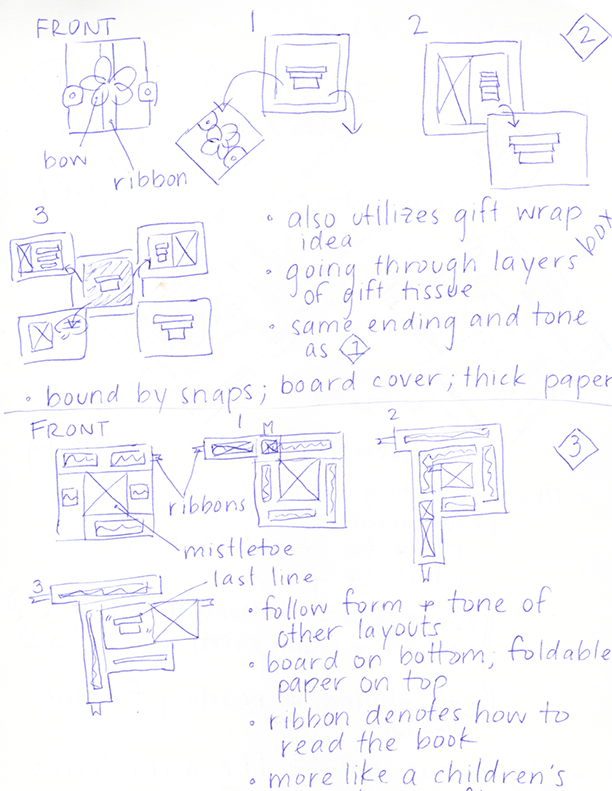 FRONT
1
2
2
bow
ribbon
3
• also utilizes gift wrap
idea
box
• going through layers
of gift tissue
• same ending and tone
as 1
• bound by snaps; board cover; thick paper
FRONT
1
M
2
3
ribbons
mistletoe
3
last line
• follow form + tone of
other layouts
• board on bottom; foldable
paper on top
• ribbon denotes how to
read the book
• more like a children's